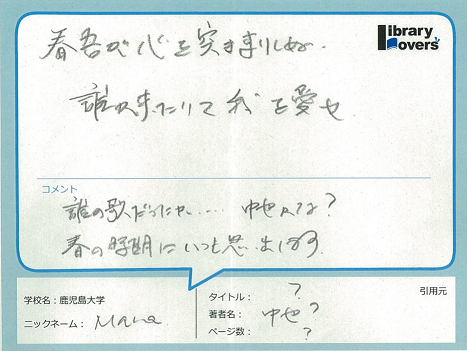 Library Lovers'
春吾が心を突き刺しぬ.
誰か来たりて我を愛せ
コメント
誰の歌だったか…… 中也かな?
春の時期にいつも思い出します
学校名:鹿児島大学
ニックネーム: Mana
タイトル: ?
著者名: 中也?
ページ数: ?
引用元